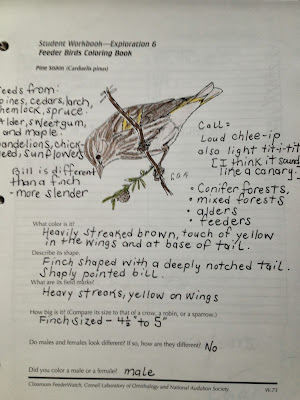 Student Workbook—Exploration 6
Feeder Birds Coloring Book
Pine Siskin (Carduelis pinus)
eeds from:
pines, cedars, larch,
hemlock, spruce.
Alder, sweetgum,
and maple.
Dandelions, chick-
weed, sunflowers
Bill is different
than a finch
- more slender
Call =
Loud chlee-ip
also light tit-i-tit
I think it sounds
like a canary.
• Conifer forests,
• mixed forests
• alders
• feeders
What color is it?
Heavily streaked brown, touch of yellow
in the wings and at base of tail.
Describe its shape.
Finch shaped with a deeply notched tail.
Shaply pointed bill.
What are its field marks?
Heavy streaks, yellow on wings
How big is it? (Compare its size to that of a crow, a robin, or a sparrow.)
Finch sized - 4½" to 5"
Do males and females look different? If so, how are they different? No
Did you color a male or a female? male
Classroom FeederWatch, Cornell Laboratory of Ornithology and National Audubon Society.
W-73